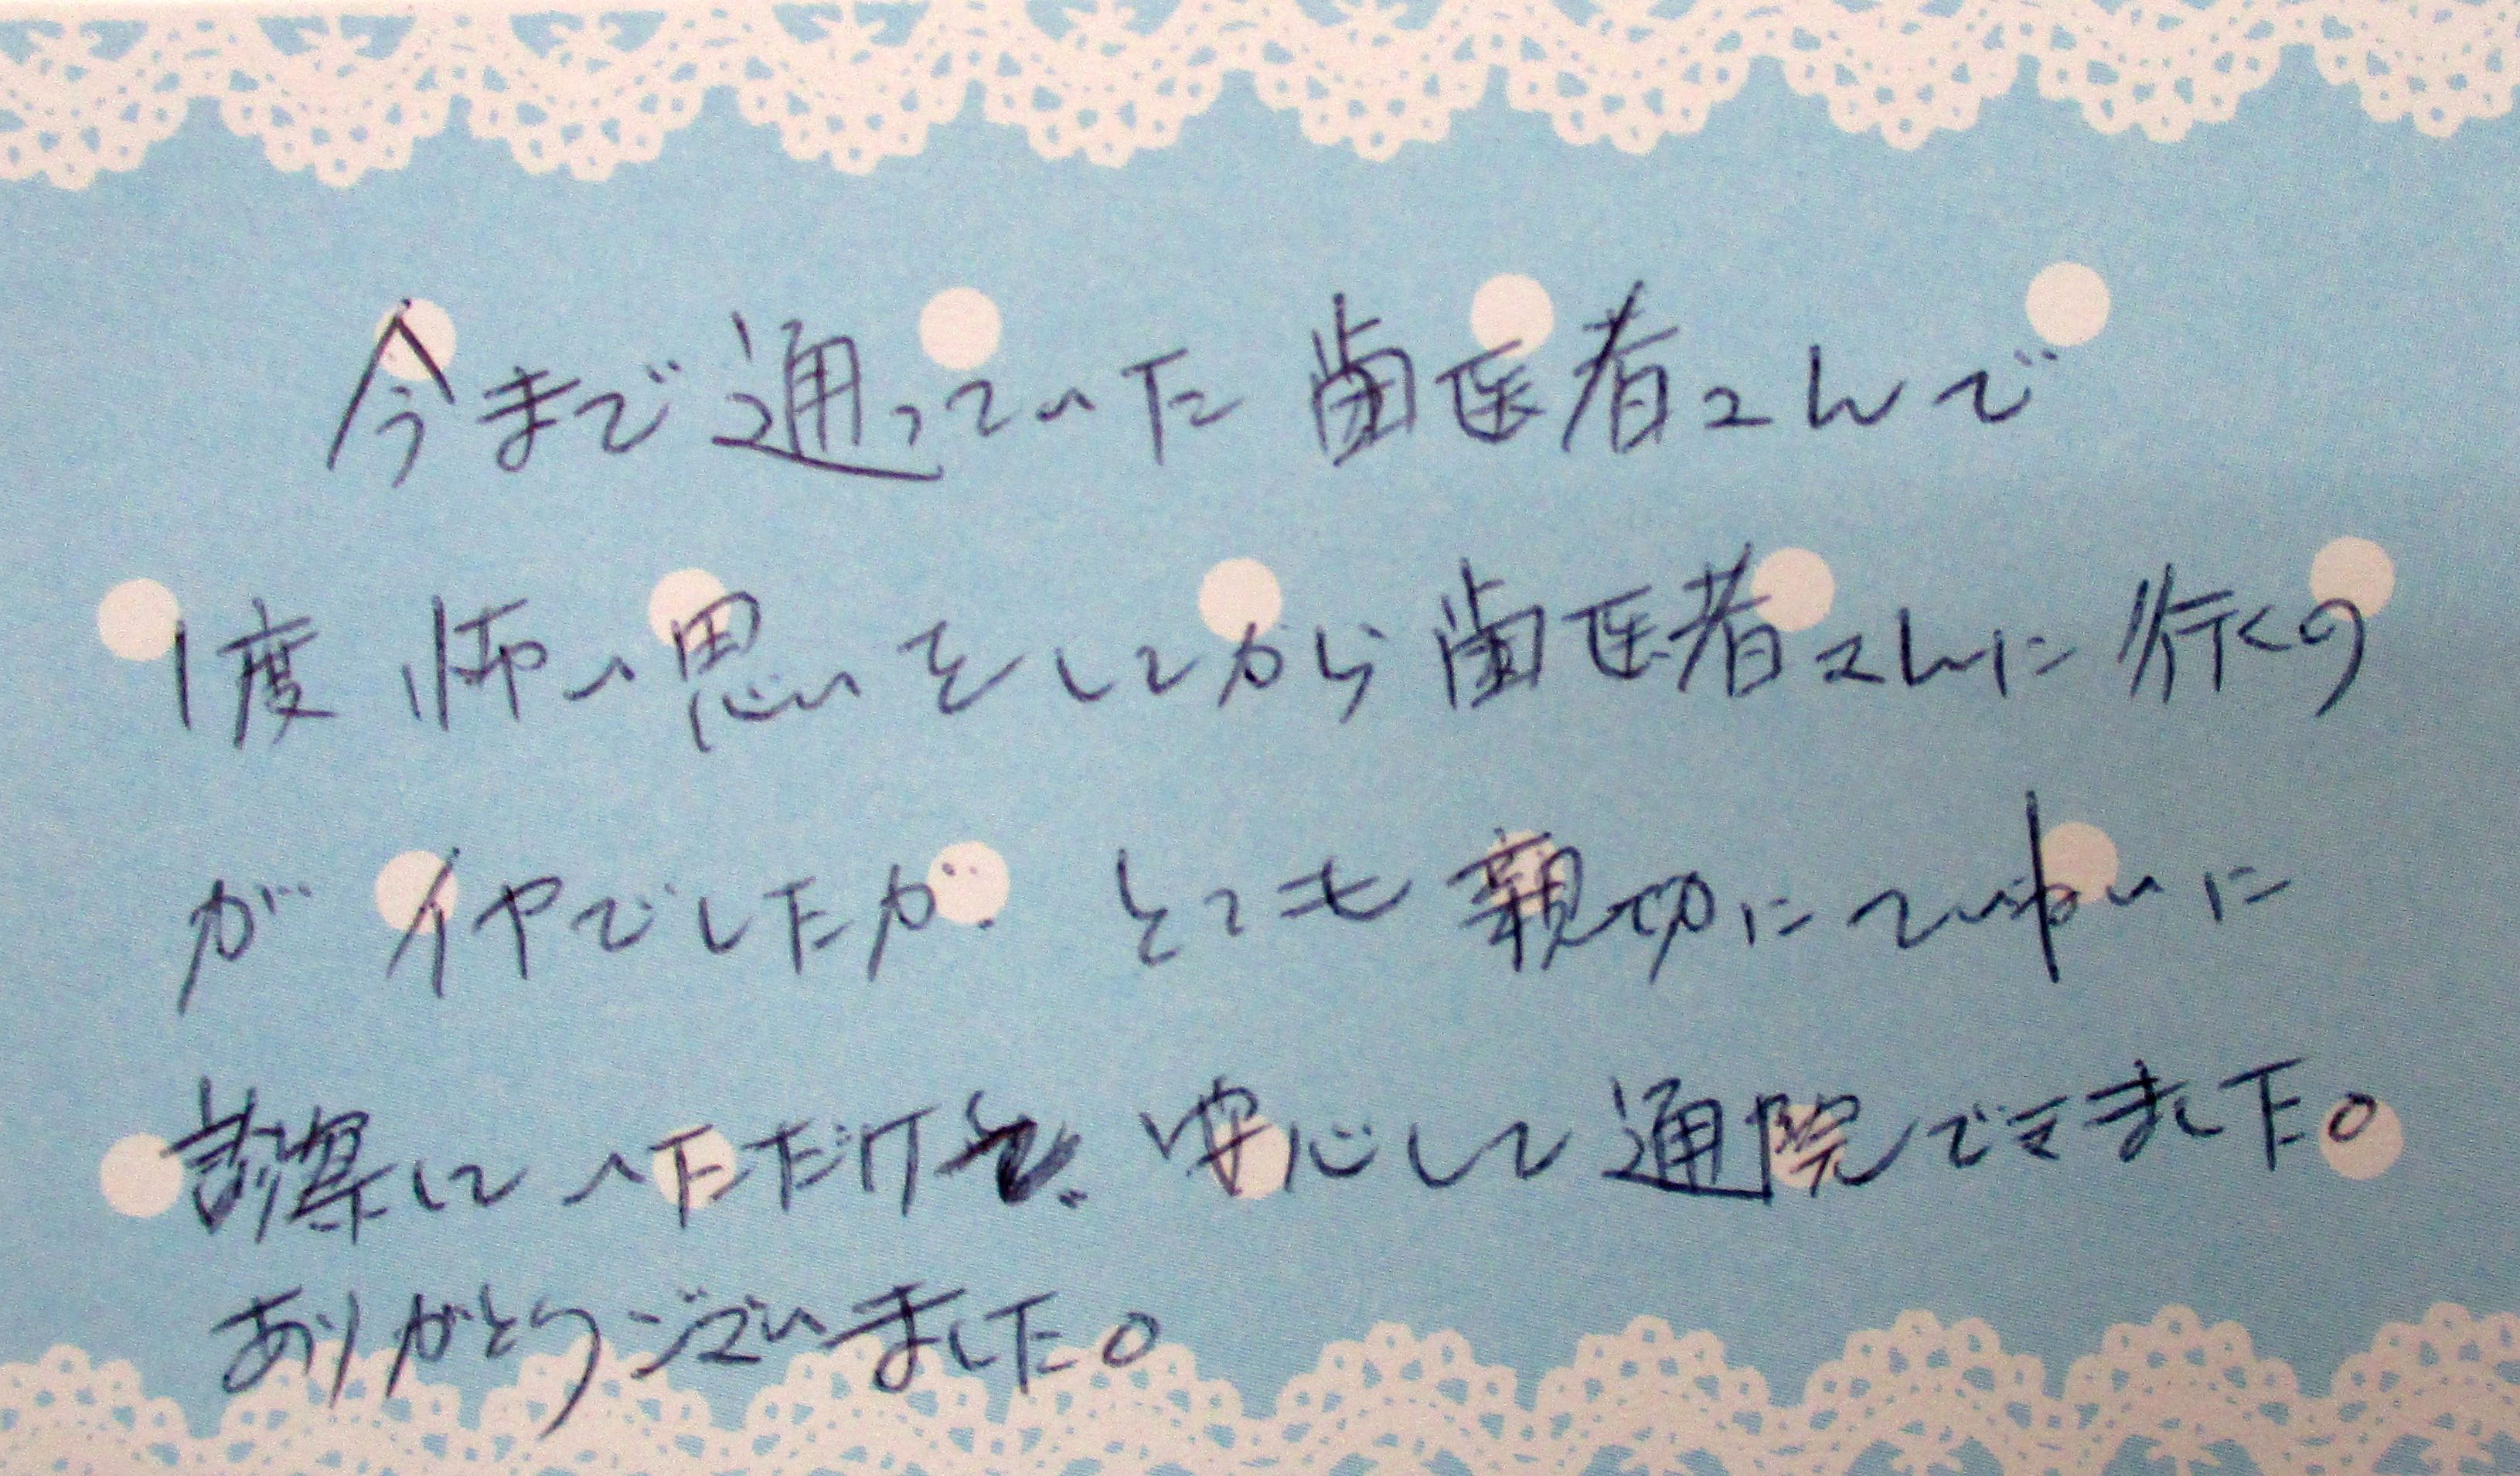 今まで通っていた歯医者さんで
1度怖い思いをしてから歯医者さんに行くの
がイヤでしたが、とても親切にていねいに
診察していただけて、安心して通院できました。
ありがとうございました。